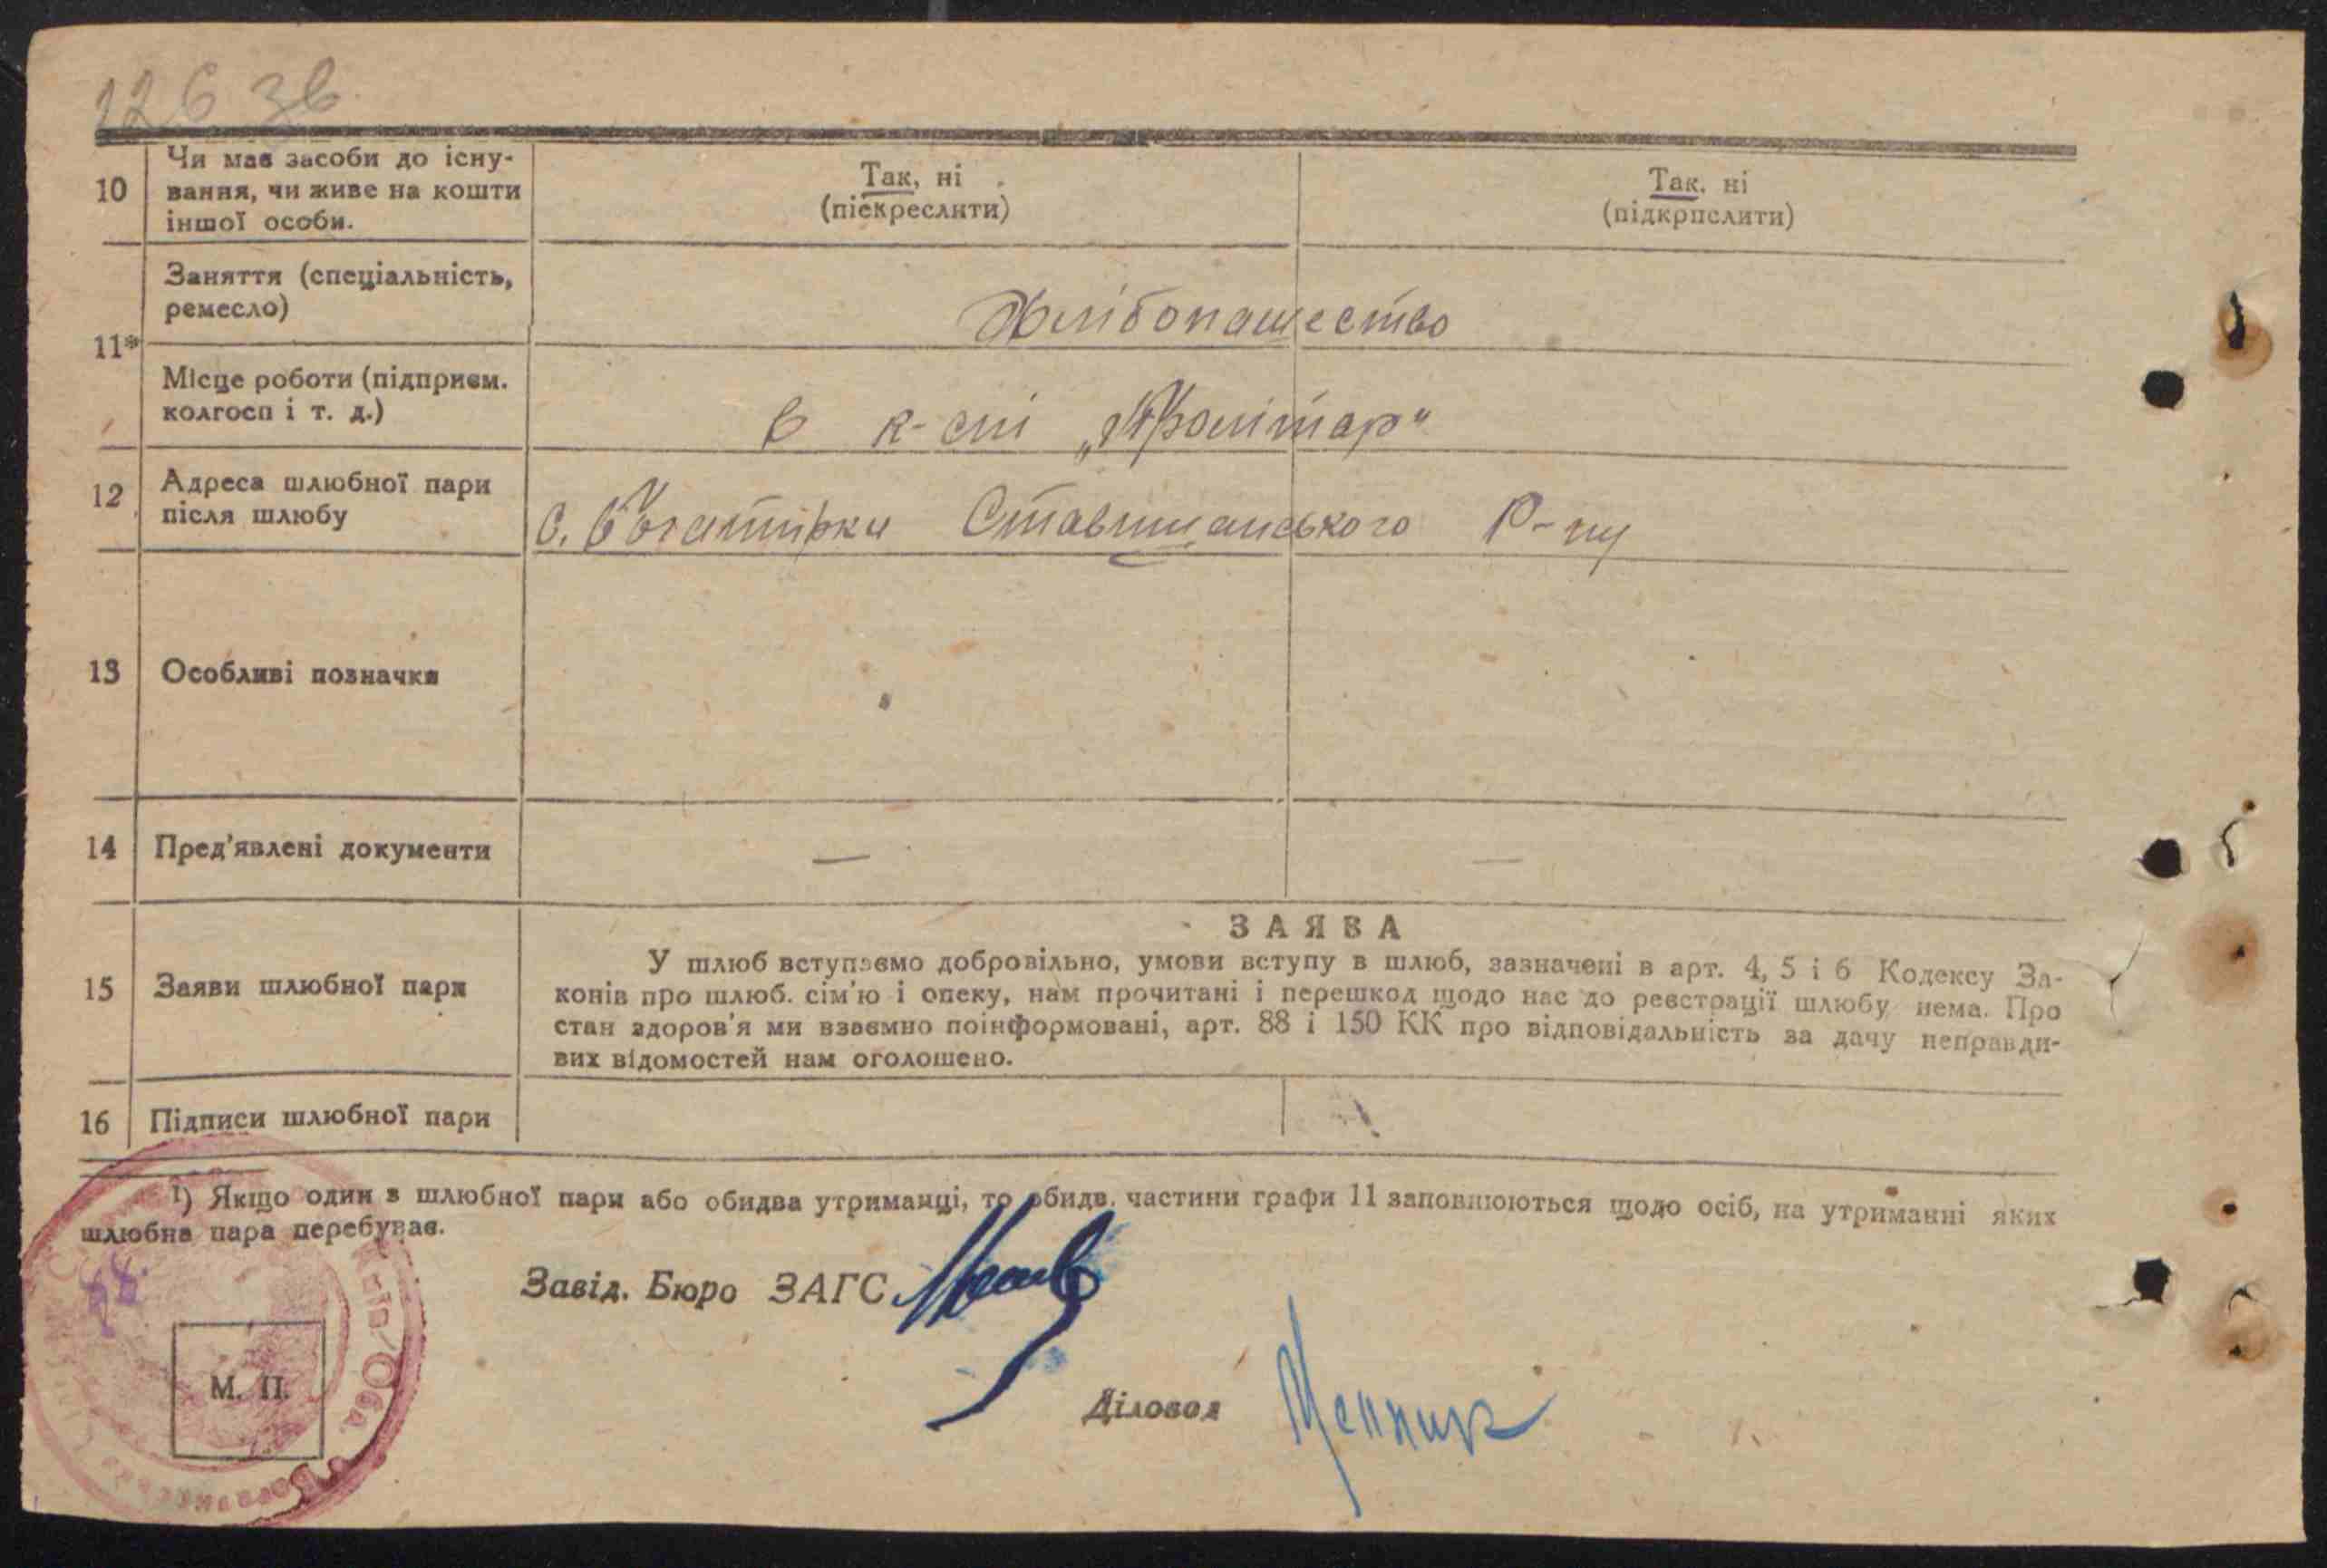 126 зв.
10 Чи має засоби до існу-
вання, чи живе на кошти
іншої особи.
Так, ні
(піекреслити)
Так, ні
(підкрпслити)
11*
Заняття (спеціальність,
ремесло)
Хлібопашество
Місце роботи (підприєм.
колгосп і т. д.)
в к-спі „Пролітар"
12 Адреса шлюбної пари
після шлюбу
С. Богатирка Ставищанського Р-ну
13 Особливі позначки
14 Пред'явлені документи
— —
15 Заяви шлюбної пари
ЗАЯВА
У шлюб вступаємо добровільно, умови вступу в шлюб, зазначені в арт. 4, 5 і 6 Кодексу За-
конів про шлюб. сім'ю і опеку, нам прочитані і перешкод щодо нас до реєстрації шлюбу нема. Про
стан здоров'я ми взаємно поінформовані, арт. 88 і 150 КК про відповідальність за дачу неправди-
вих відомостей нам оголошено.
16 Підписи шлюбної пари
1) Якщо один з шлюбної пари або обидва утриманці, то обидв. частини графи 11 заповнюються щодо осіб, на утриманні яких
шлюбна пара перебуває.
Завід. Бюро ЗАГС
Діловод
М. П.